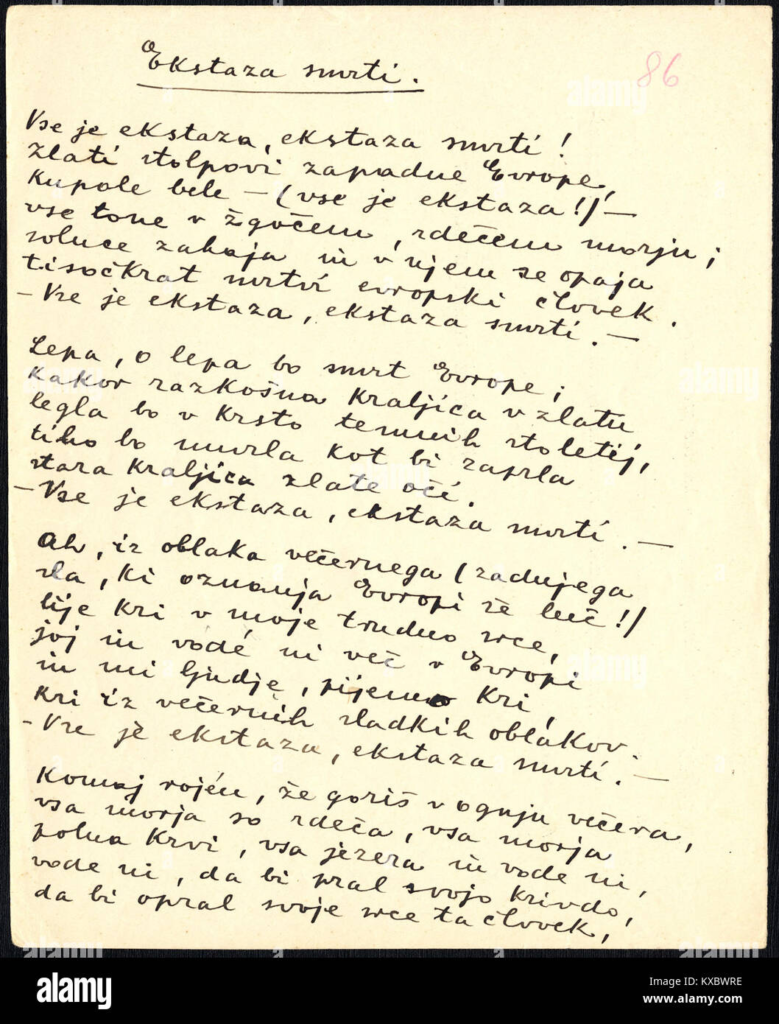 Ekstaza smrti.
86
Vse je ekstaza, ekstaza smrti!
Zlati stolpovi zapadne Evrope,
kupole bele — (vse je ekstaza!) —
vse tone v žgočem, rdečem morju;
solnce zahaja in v njem se opaja
tisočkrat mrtvi evropski človek.
— Vse je ekstaza, ekstaza smrti. —
Lepa, o lepa bo smrt Evrope;
kakor razkošna kraljica v zlatu
legla bo v krsto temnih stoletij,
tiho bo umrla kot bi zaprla
stara kraljica zlate oči.
— Vse je ekstaza, ekstaza smrti. —
Ah, iz oblaka večernega (zadnjega
sla, ki oznanja Evropi še luč!)
lije kri v moje trudno srce,
joj in vodé ni več v Evropi
in mi ljudje, pijemo kri,
kri iz večernih sladkih oblakov.
— Vse je ekstaza, ekstaza smrti. —
Komaj rojén, že goriš v ognju večera,
vsa morja so rdeča, vsa morja
polna krvi, vsa jezera in vode ni,
vode ni, da bi pral svojo krivdo,
da bi opral svoje srce ta človek,
alamy
Image ID: KXBWRE
www.alamy.com